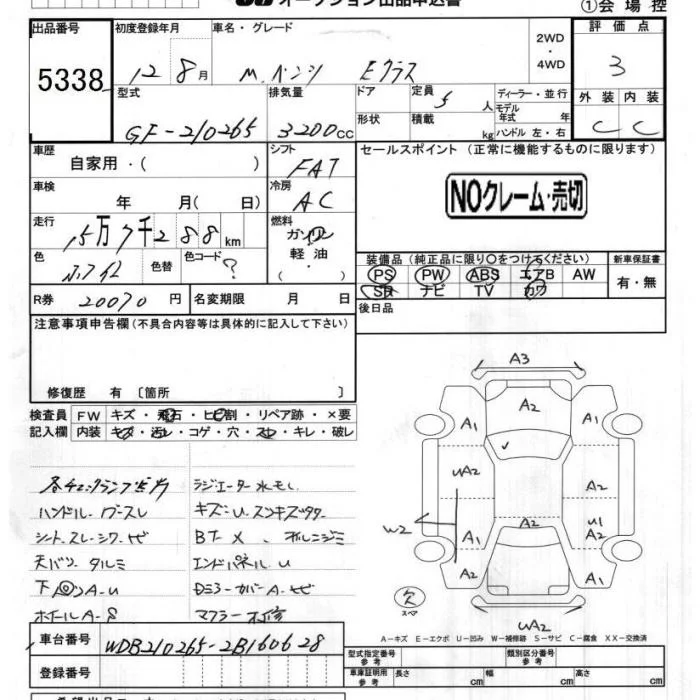 オークション出品申込書
①会場控
出品番号
5338
初度登録年月
12 8月
車名・グレード
M.ベンツ Eクラス
2WD
・
4WD
評価点
3
型式
GF-210265
排気量
3200cc
ドア
形状
定員
5人
積載
kg
ディーラー・並行
モデル年式 年
ハンドル 左・右
外装 内装
C C
車歴
自家用・( )
シフト
FAT
セールスポイント (正常に機能するものに限ります)
NOクレーム・売切
車検
年 月( 日)
冷房
AC
走行
15万7千288km
燃料
ガソリン
軽油
・( )
色
色替
色コード
?
装備品(純正品に限り○をつけてください)
PS PW ABS エアB AW
SR ナビ TV カワ
新車保証書
有・無
R券 20070円
名変期限 月 日
後日品
注意事項申告欄(不具合内容等は具体的に記入して下さい)
修復歴 有〔箇所 〕
検査員記入欄
FW キズ・飛石・ヒビ割・リペア跡・×要
内装 キズ・汚レ・コゲ・穴・スレ・キレ・破レ
各チェックランプ点灯
ラジエーター水モレ
ハンドル
キズ・U
シート スレ・シワ
BT X
天バリ タルミ
エンドパネル U
下 A-U
ドミラーカバー A
ホイールA-8
マフラー不修
A3
A2
A1 A1
✓
UA2 A2
W2
A2
U1
A1 A2
A2 A1
欠
スペア
UA2
A-キズ E-エクボ U-凹み W-補修跡 S-サビ C-腐食 XX-交換済
車台番号
WDB210265-2B160628
登録番号
型式指定番号
参考
類別区分番号
参考
車庫証明用
参考
長さ cm
幅 cm
高さ cm